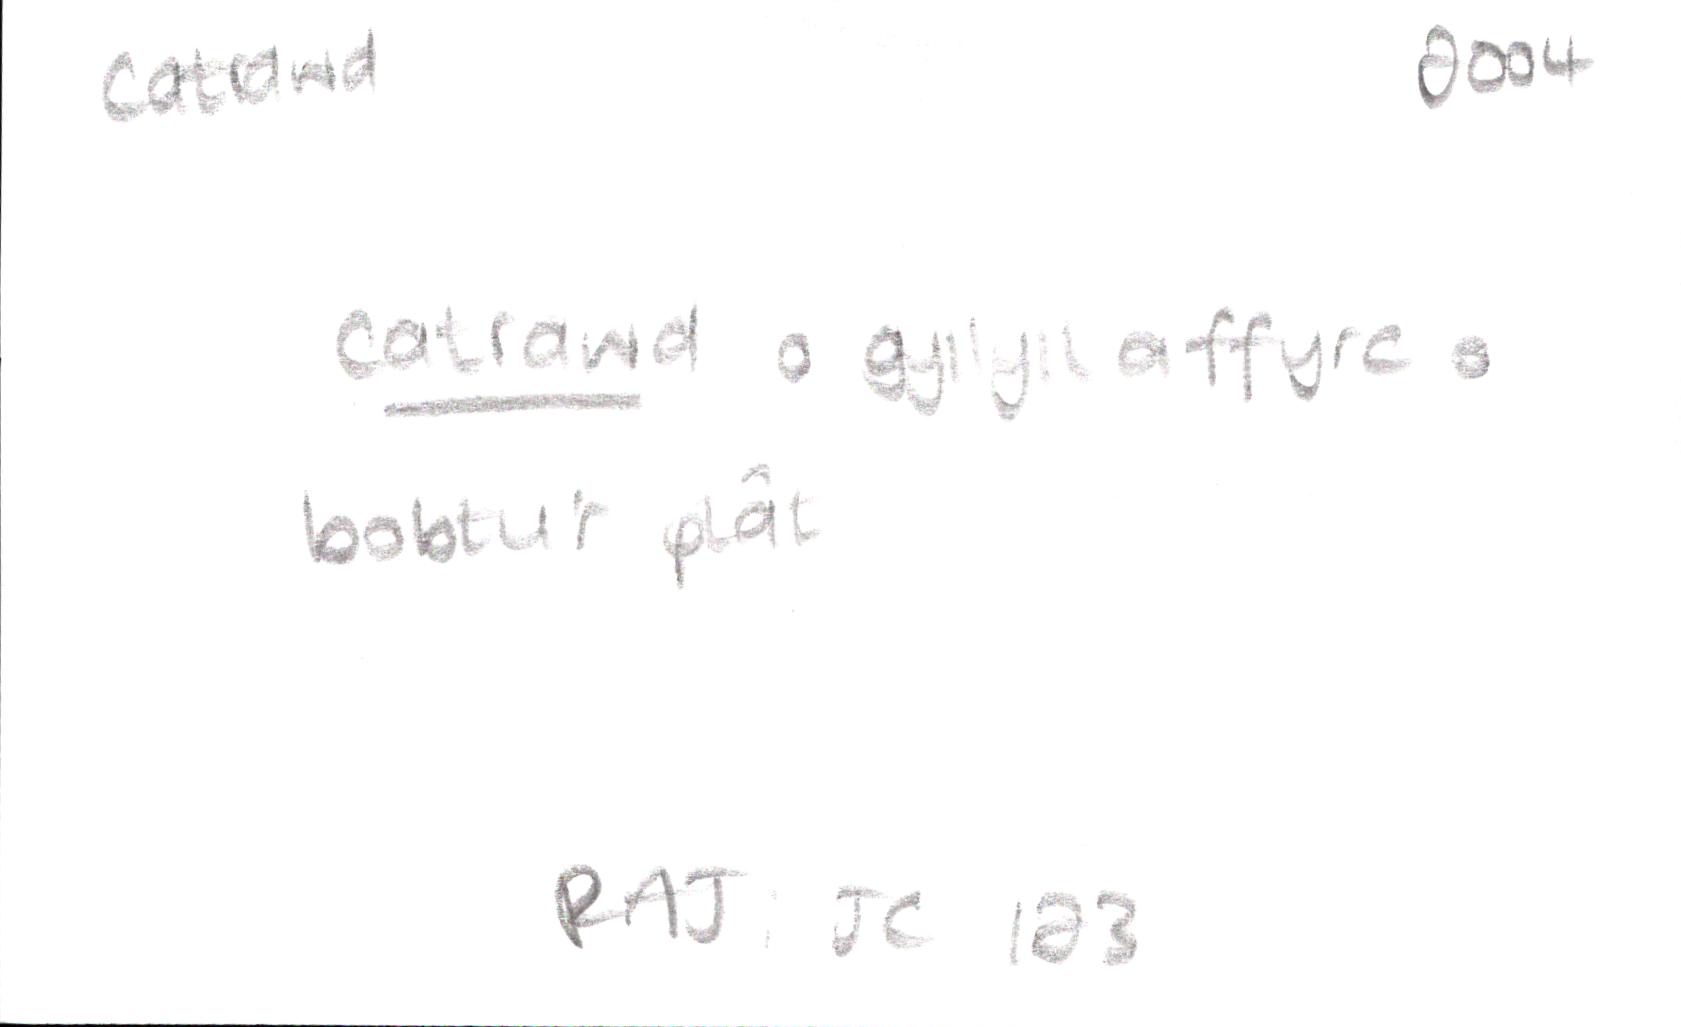 catrawd 2004
catrawd o gyllyll a ffyrc o
bobtu'r plât
RAJ: JC 123